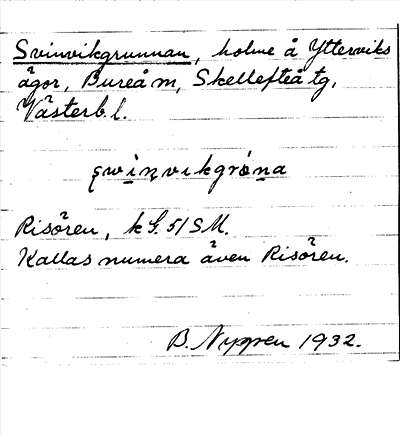 Svinvikgrunnan, holme å Ytterviks
ägor, Bureå m, Skellefteå tg,
Västerb. l.
swinvikgrȯna
Risören, k S. 51 S M.
Kallas numera även Risören.
B. Nyppen 1932.